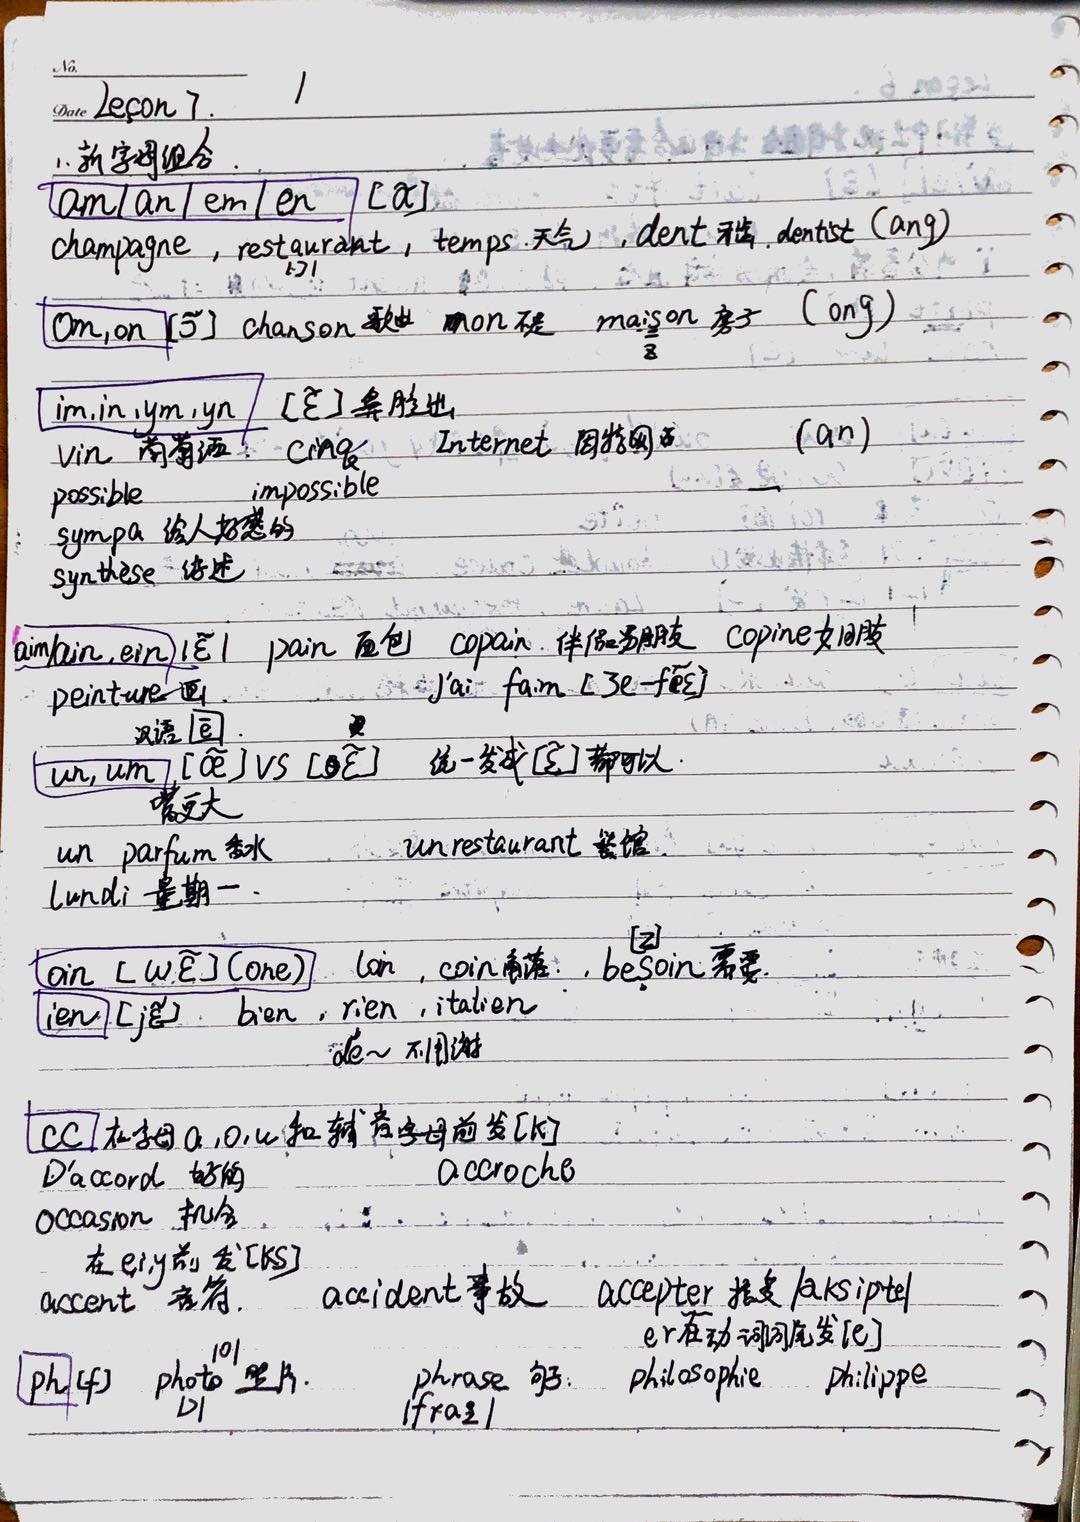 No.
Date Leçon 7. 1
1. 新字母组合.
am/an/em/en [ɑ̃]
champagne, restaurant, temps 天气, dent 牙齿. dentist (ang)
[ɔ]
om, on [ɔ̃] chanson 歌曲 mon 不是 maison 房子 (ong)
z
im, in, ym, yn [ɛ̃] 鼻腔出
vin 葡萄酒. cinq Internet 因特网 (an)
possible impossible
sympa 给人好感的
synthèse 综述
aim/ain, ein [ɛ̃] pain 面包 copain 伴侣男朋友 copine 女朋友
peinture 画 j'ai faim [ʒe-fɛ̃]
汉语
un, um [œ̃] VS [ɛ̃] 统一发成[ɛ̃]都可以.
嘴更大
un parfum 香水 un restaurant 餐馆.
lundi 星期一.
[z]
oin [wɛ̃] (one) loin, coin 角落, besoin 需要.
ien [jɛ̃] bien, rien, italien
de~ 不用谢
cc 在字母a, o, u和辅音字母前发[K]
D'accord 好的 accroche
occasion 机会
在e,i,y前发[KS]
accent 音符. accident 事故 accepter 接受 /aksipte/
er在动词词尾发[e]
|o|
ph [f] photo 照片. phrase 句子. philosophie philippe
|ɔ| |fraz|